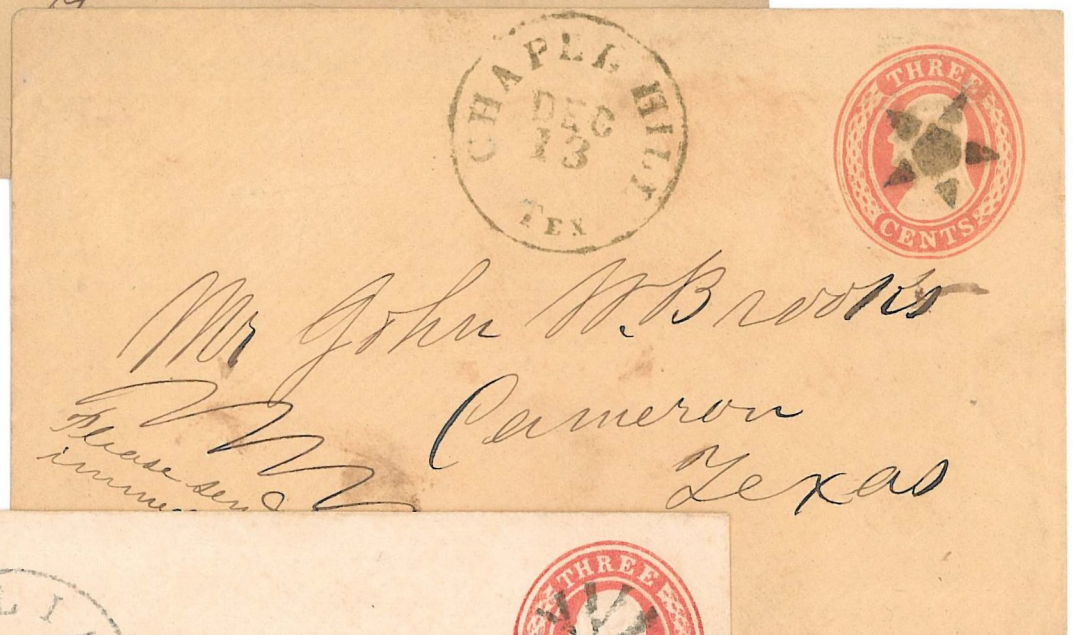 CHAPEL HILL
DEC
13
TEX
THREE
CENTS
Mr John W. Brooks
Cameron
Texas
Please send
THREE